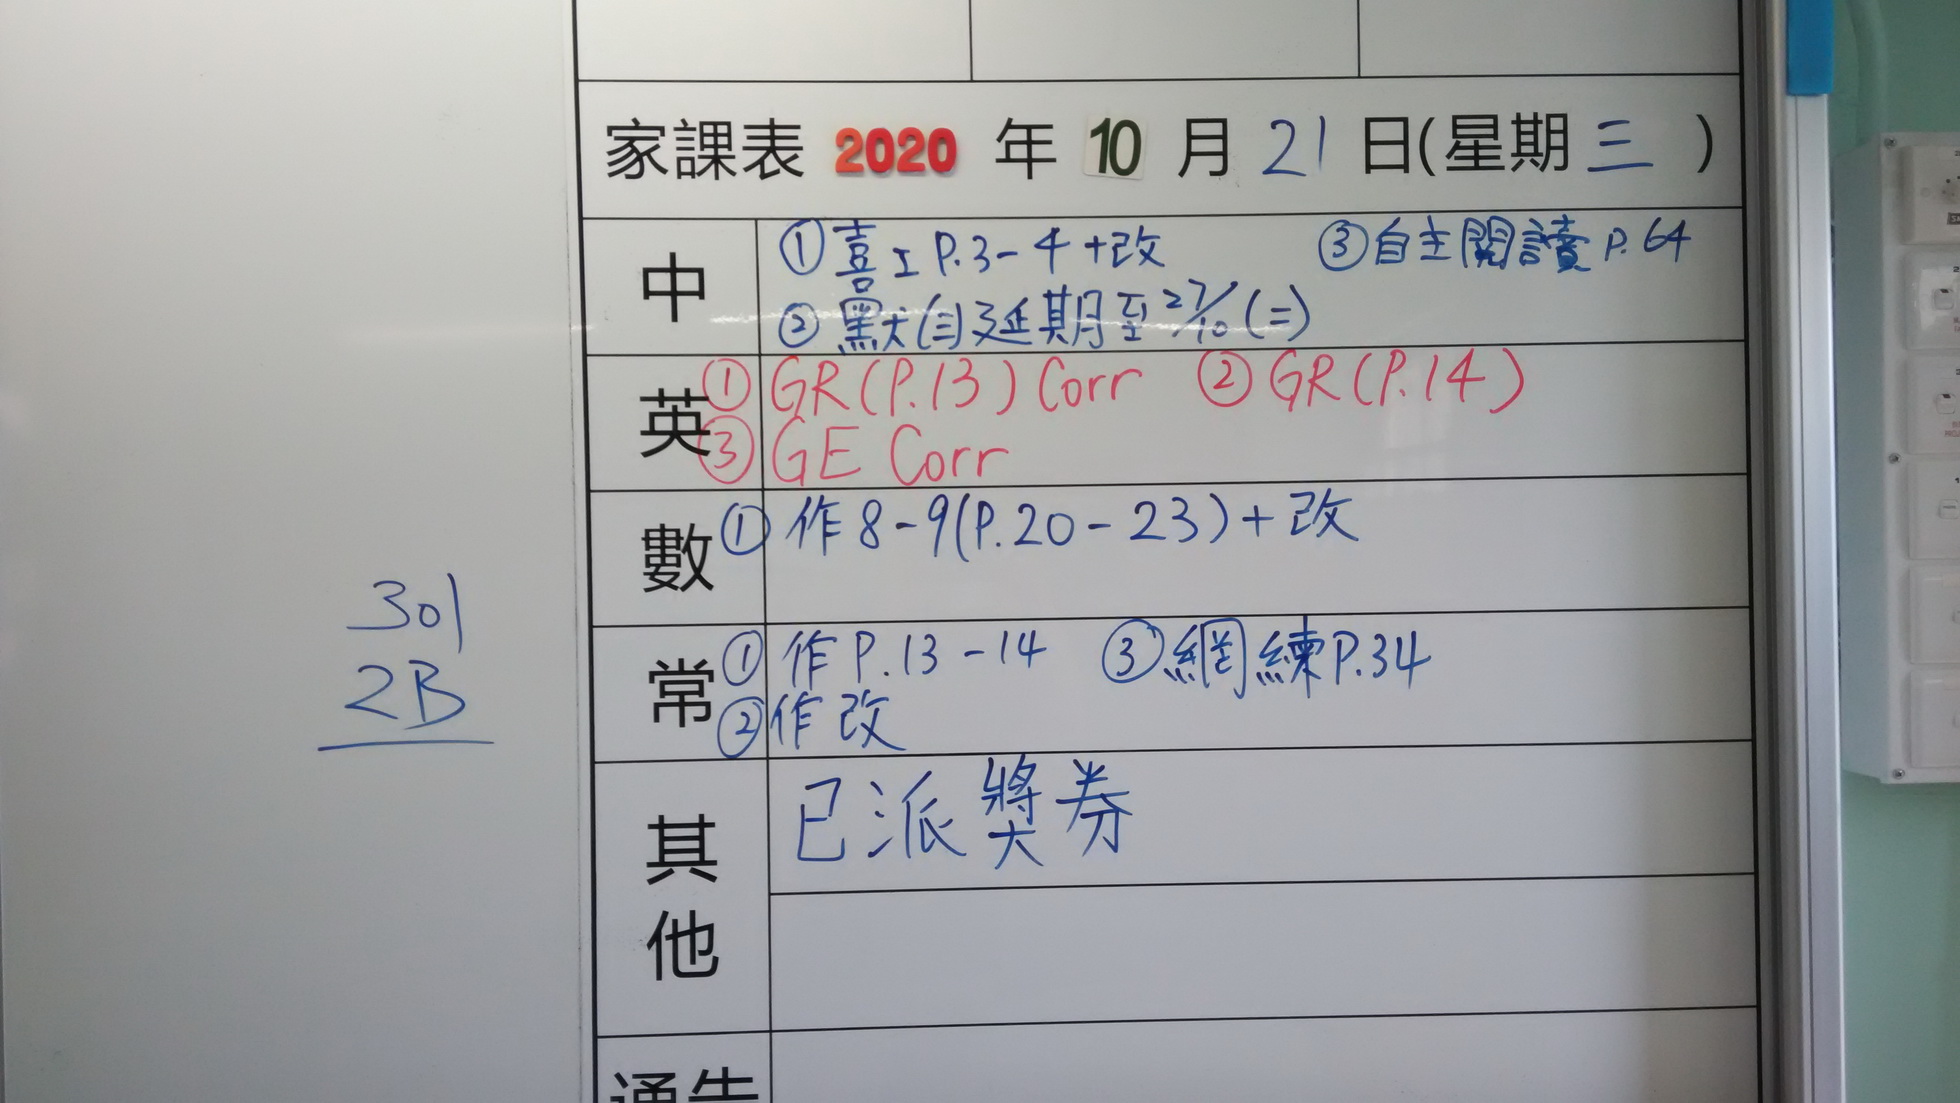 家課表 2020 年 10 月 21 日(星期 三 )
中 ① 喜工 P.3-4 +改 ③ 自主閱讀 P.64
② 默(三)延期至27/10(二)
英 ① GR(P.13) Corr ② GR(P.14)
③ GE Corr
數 ① 作8-9(P.20-23)+改
常 ① 作 P.13-14 ③ 網練P.34
② 作改
其他 已派獎券
通告
301
2B